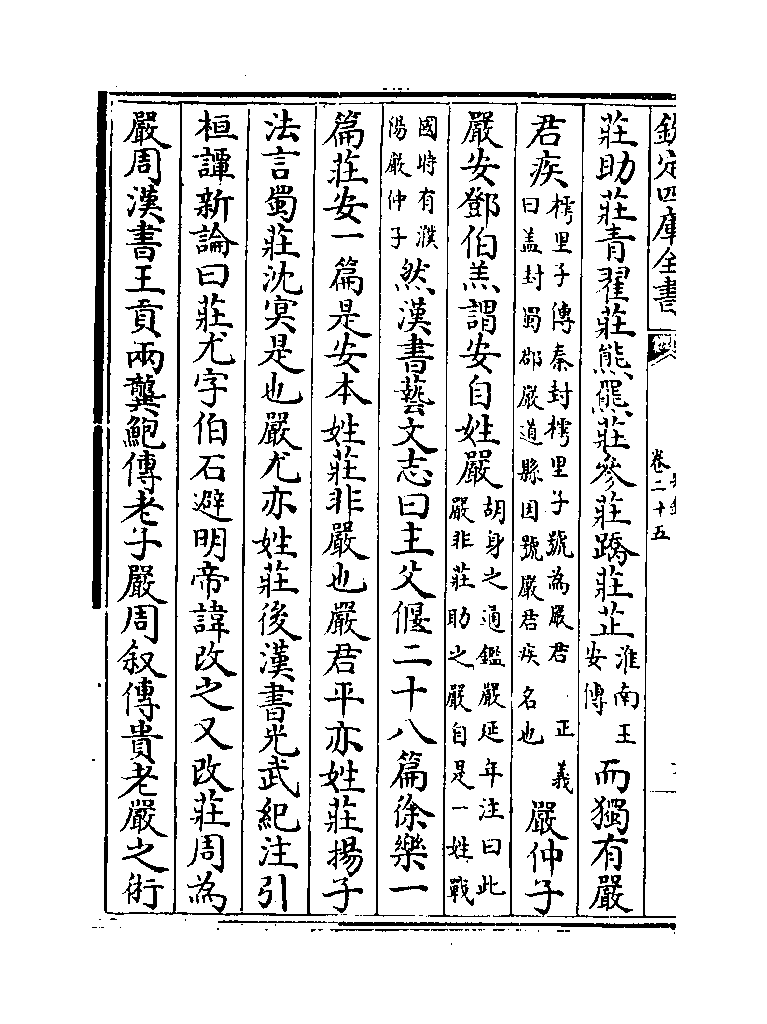 欽定四庫全書
卷二十五
莊助莊青翟莊熊羆莊參莊蹻莊芷淮南王安傳而獨有嚴
君疾樗里子傳秦封樗里子號為嚴君 正義曰盖封蜀郡嚴道縣因號嚴君疾名也嚴仲子
嚴安鄧伯羔謂安自姓嚴胡身之通鑑嚴延年注曰此嚴非莊助之嚴自是一姓戰
國時有濮陽嚴仲子然漢書藝文志曰主父偃二十八篇徐樂一
篇莊安一篇是安本姓莊非嚴也嚴君平亦姓莊揚子
法言蜀莊沈冥是也嚴尤亦姓莊後漢書光武紀注引
桓譚新論曰莊尤字伯石避明帝諱改之又改莊周為
嚴周漢書王貢兩龔鮑傳老子嚴周叙傳貴老嚴之術